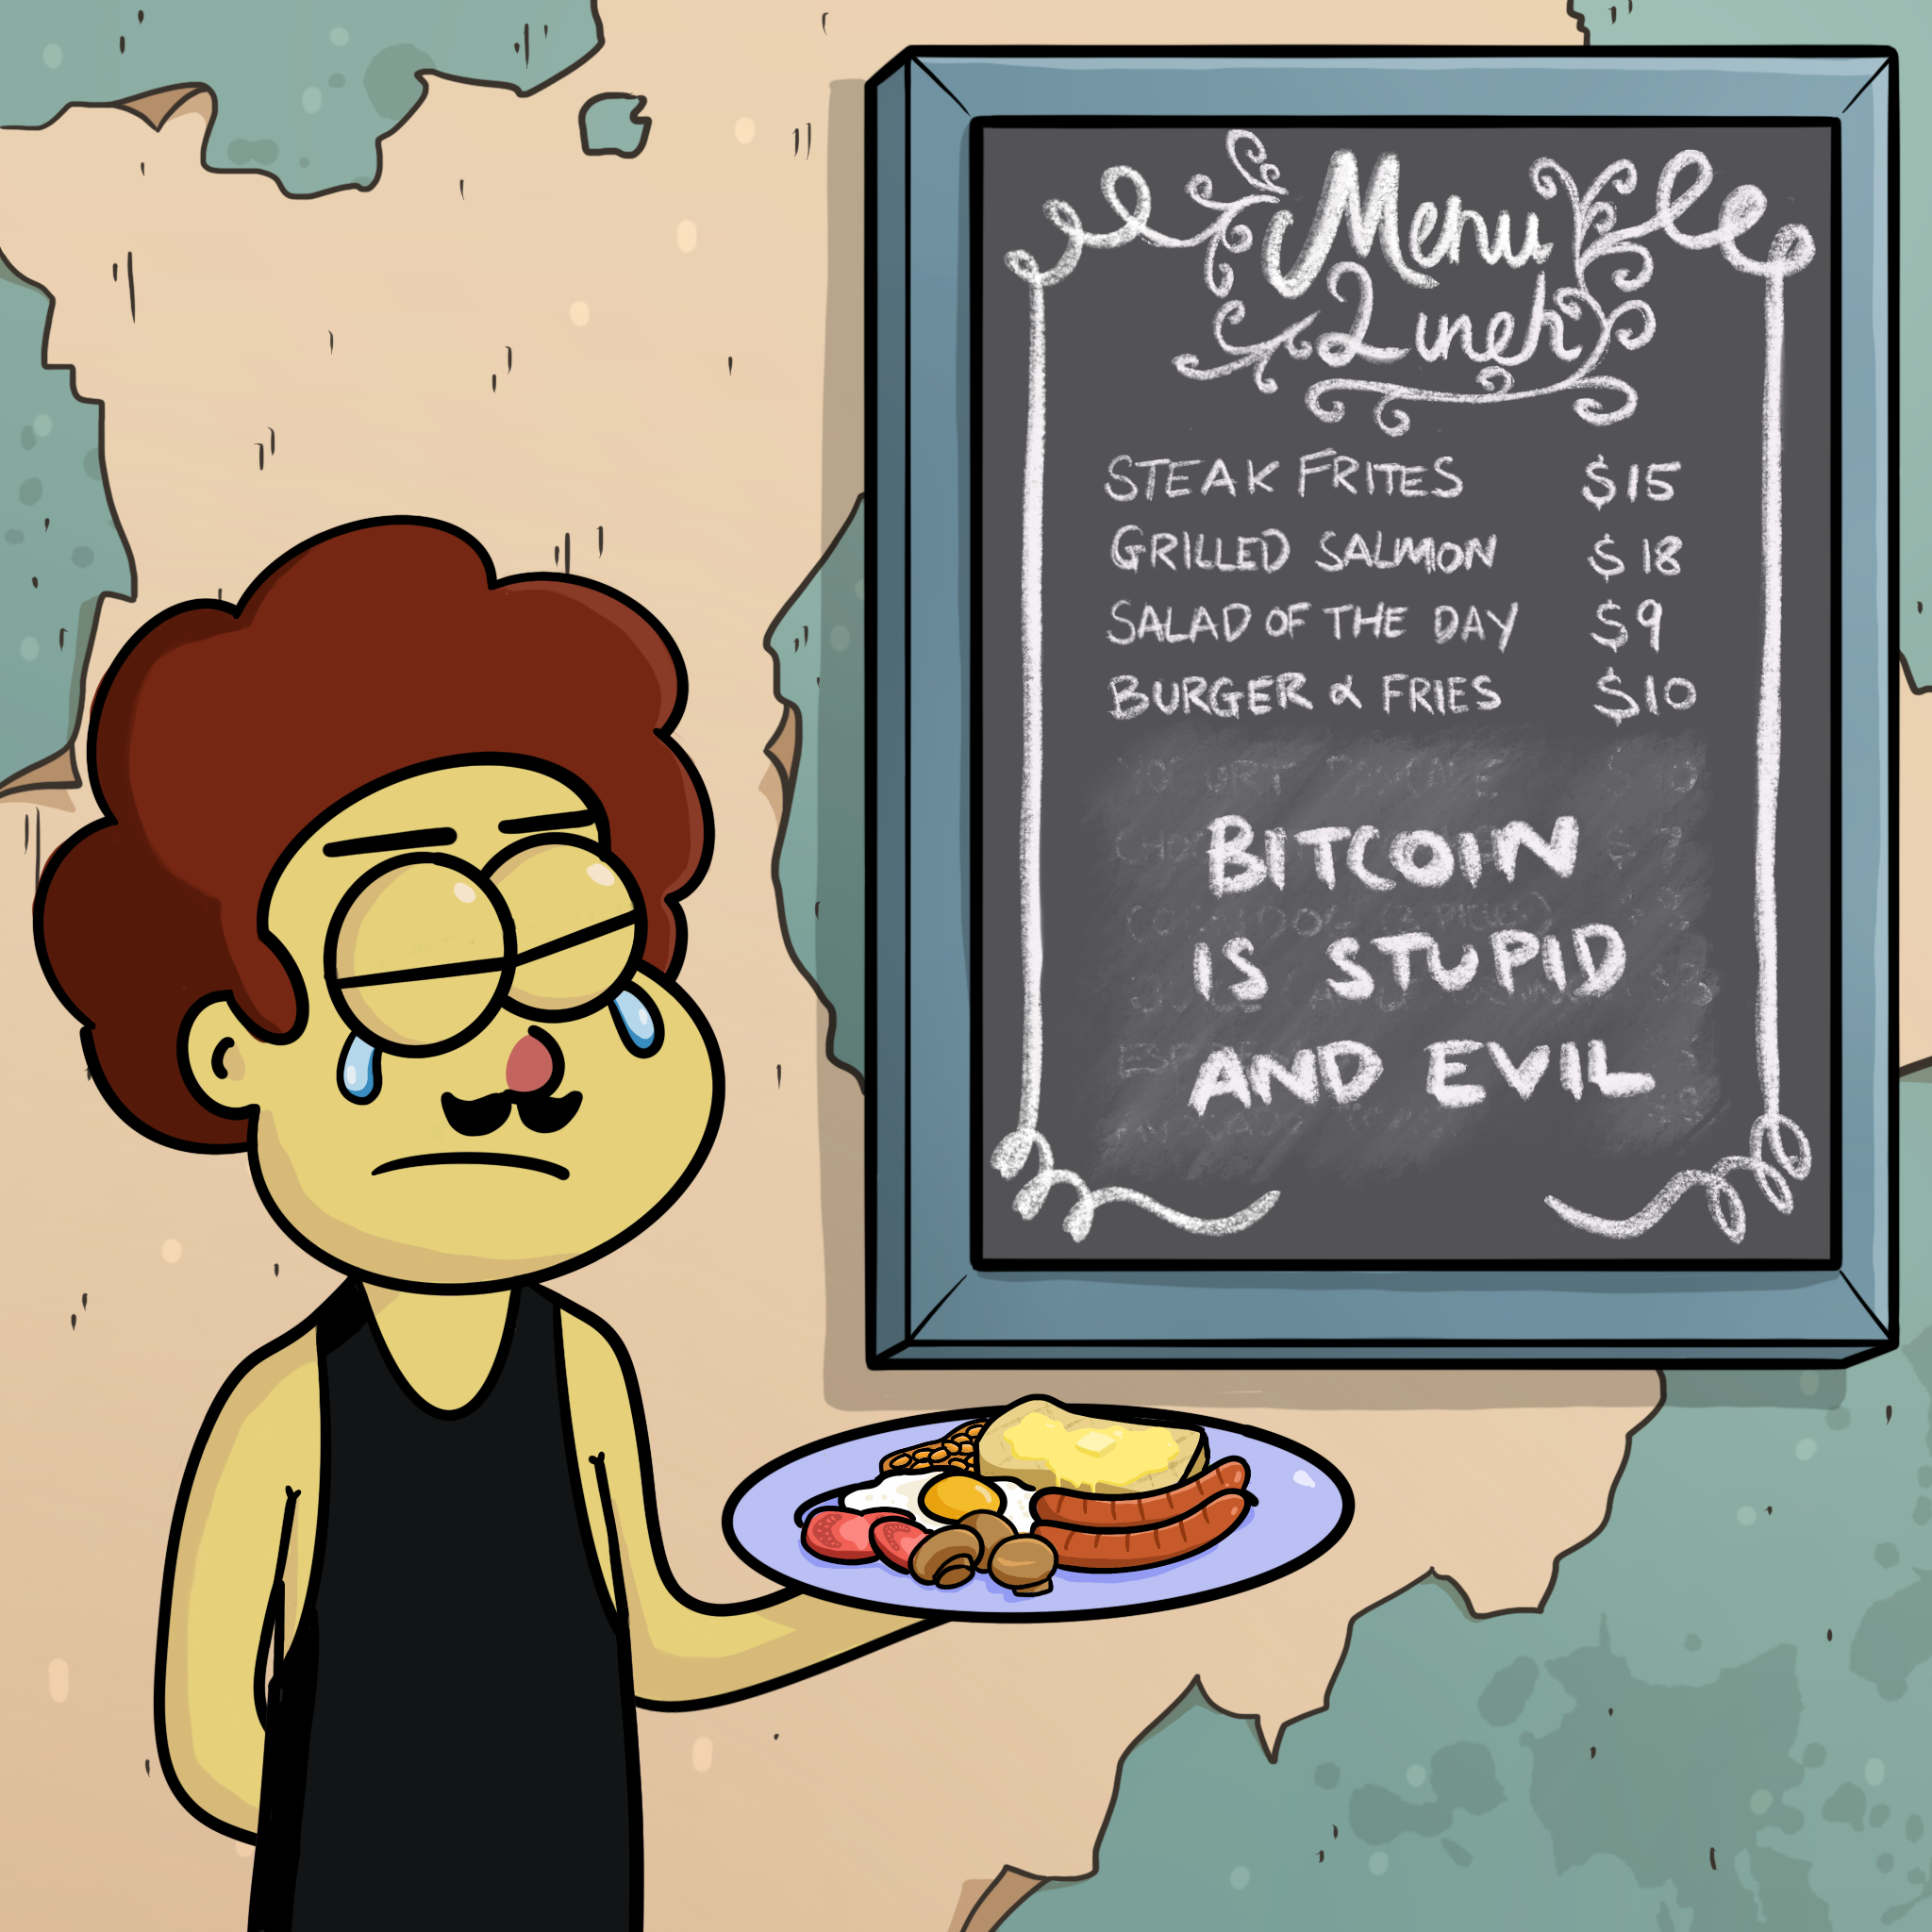 Menu
Lunch
STEAK FRITES $15
GRILLED SALMON $18
SALAD OF THE DAY $9
BURGER & FRIES $10
BITCOIN
IS STUPID
AND EVIL